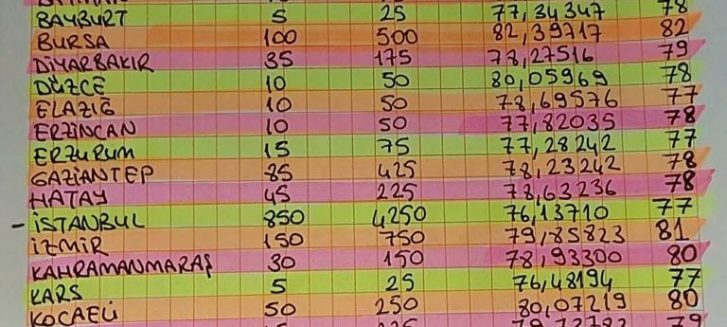 BAYBURT 5 25 77,34347 78
BURSA 100 500 82,39717 82
DİYARBAKIR 35 175 78,27516 79
DÜZCE 10 50 80,05969 78
ELAZIĞ 10 50 78,69576 77
ERZİNCAN 10 50 77,82035 78
ERZURUM 15 75 77,28242 77
GAZİANTEP 85 425 78,23242 78
HATAY 45 225 78,63236 78
- İSTANBUL 850 4250 76,13710 77
İZMİR 150 750 79,85823 81
KAHRAMANMARAŞ 30 150 78,93300 80
KARS 5 25 76,48194 77
KOCAELİ 50 250 80,07219 80
79